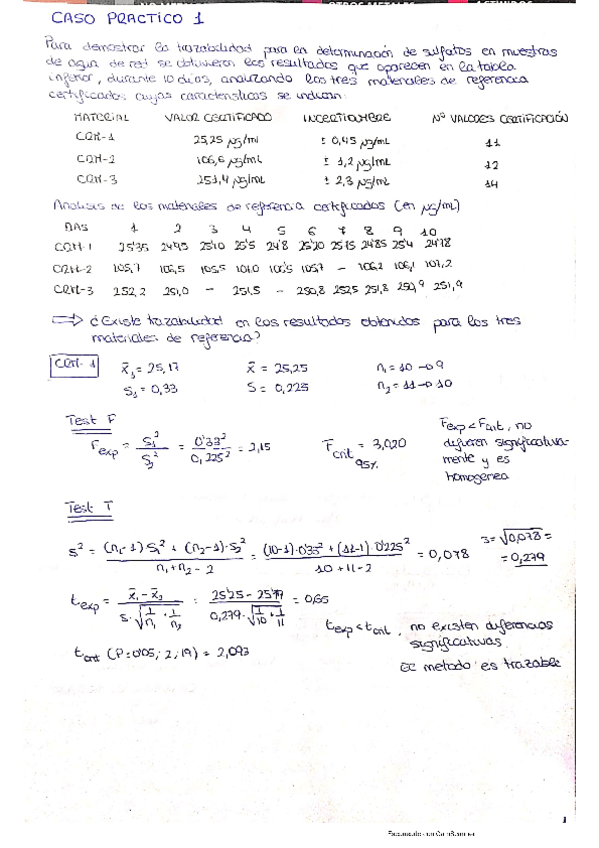 CASO PRACTICO 1
Para demostrar la trazabilidad para en determinación de sulfatos en muestras
de agua de red se obtuvieron los resultados que aparecen en la tabla
inferior, durante 10 días, analizando los tres materiales de referencia
certificados cuyas características se indican:
MATERIAL VALOR CERTIFICADO INCERTIDUMBRE Nº VALORES CERTIFICACIÓN
CRM-1 25,25 µg/ml ± 0,45 µg/mL 11
CRM-2 106,6 µg/mL ± 1,2 µg/mL 12
CRM-3 251,4 µg/mL ± 2,3 µg/mL 14
Analisis de los materiales de referencia certificados (en µg/mL)
DIAS 1 2 3 4 5 6 7 8 9 10
CRM-1 25'35 24'95 25'10 25'5 24'8 25'20 25'15 24'85 25'4
CRM-2 105,7 106,5 105,5 105,7 - 106,2 106,1 107,2
CRM-3 252,2 251,0 - 251,5 - 250,8 252,5 251,8 250,9 251,9
⇒ ¿Existe trazabilidad en los resultados obtenidos para los tres
materiales de referencia?
CRM-1 x̄₁ = 25,17 x̄ = 25,25 n₁ = 10 → 9
S₁ = 0,33 S = 0,225 n₂ = 11 → 10
Test F
Fexp = S₁²/S₂² = 0'33²/0,225² = 2,15 Fcrit 95% = 3,020
Fexp < Fcrit, no
difieren significativa-
mente y es
homogenea
Test T
S² = (n₁-1)S₁² + (n₂-1)·S₂² / n₁+n₂-2 = (10-1)·0'33² + (11-1)·0'225² / 10+11-2 = 0,078 S = √0,078 =
= 0,279
texp = x̄₁ - x̄₂ / S·√(1/n₁ + 1/n₂) = 25'25 - 25'17 / 0,279·√(1/10 + 1/11) = 0,65
texp < tcrit, no existen diferencias
significativas.
tcrit (P=0'05; 2; 19) = 2,093
EC metodo es trazable
1
Escaneado con CamScanner